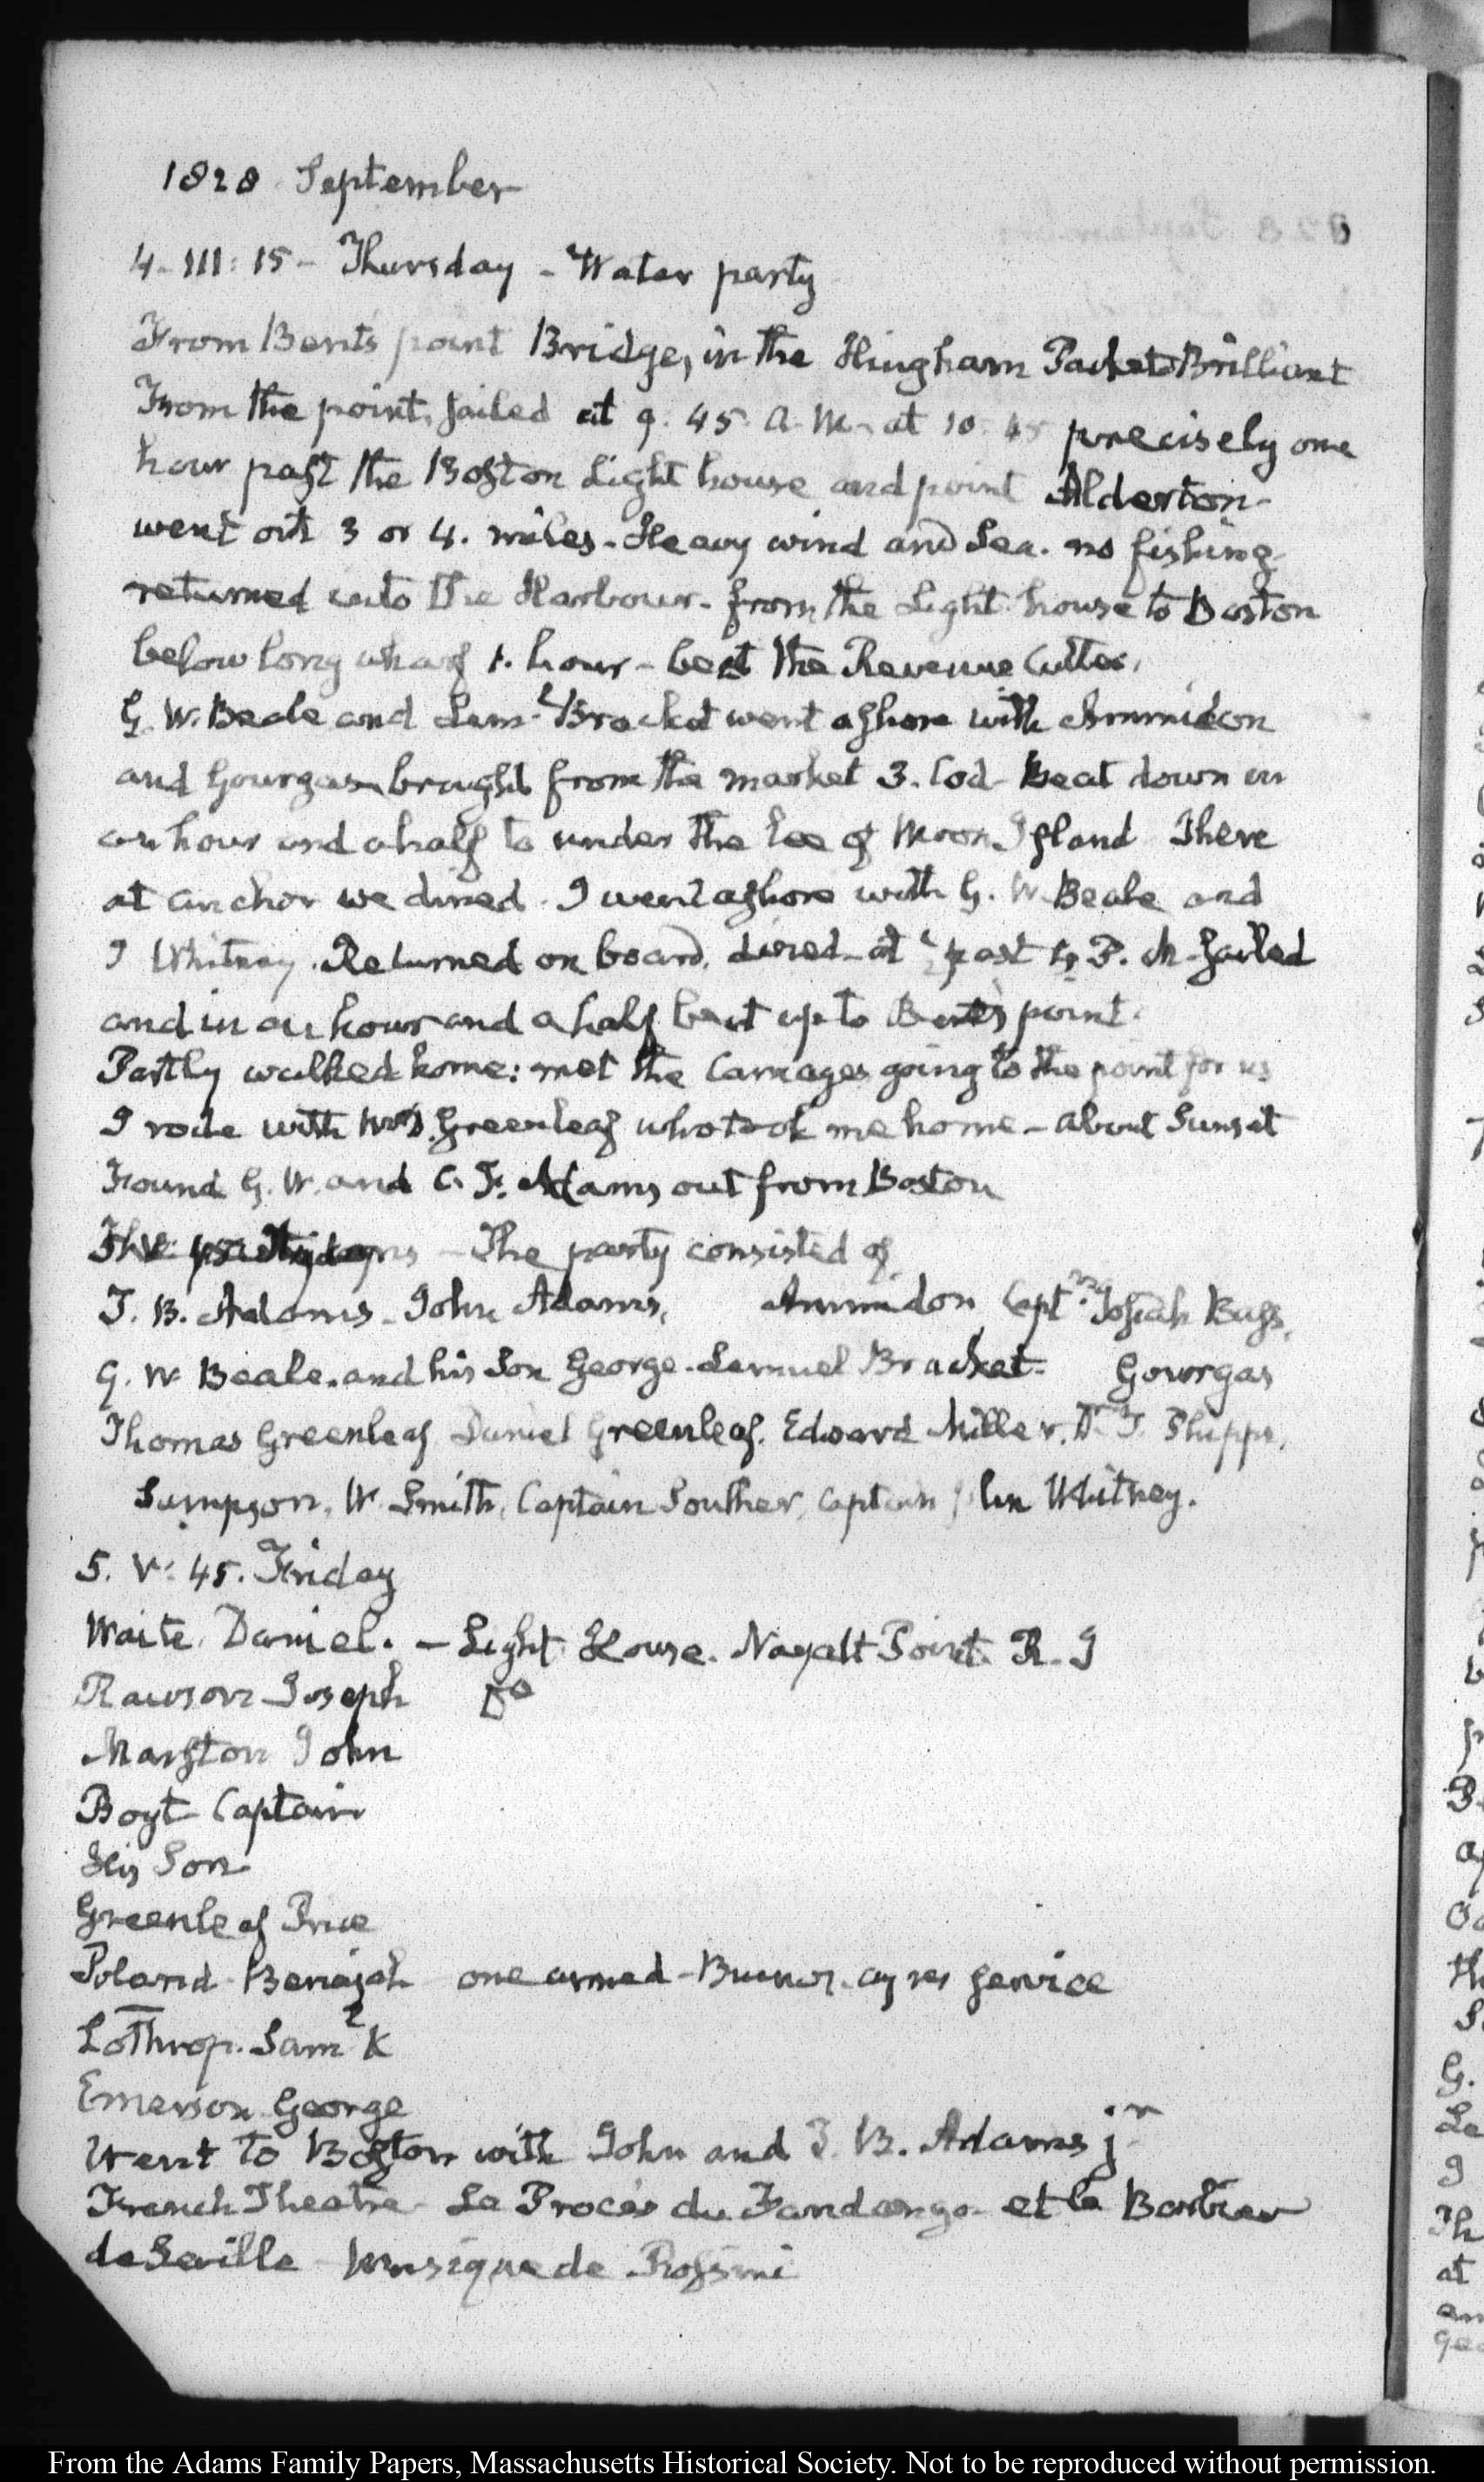 1828 September
4. III: 15 - Thursday - Water party
From Bent's point Bridge, in the Hingham Packet Brilliant
From the point, sailed at 9. 45. A.M. at 10. 45 precisely one
hour past the Boston Light house and point Alderton -
went out 3 or 4. miles - Heavy wind and Sea. no fishing
returned into the Harbour. from the Light house to Boston
below long wharf 1. hour - beat the Revenue Cutter.
G. W. Beale and Lem.l Bracket went ashore with Ammidon
and Gourgas brought from the market 3. Cod - Beat down in
an hour and a half to under the Lee of Moon Island There
at anchor we dined. I went ashore with G. W. Beale and
J Whitney. Returned on board, dined - at past P. M. sailed
and in an hour and a half beat up to Bent's point.
Partly walked home: met the Carriages going to the point for us
I rode with Greenleaf who took me home - about Sunset
Found G. W. and C. F. Adams out from Boston
The - The party consisted of
T. B. Adams. John Adams, Ammidon Capt. Josiah Bass,
G. W. Beale. and his Son George. Lemuel Bracket. Gourgas
Thomas Greenleaf Daniel Greenleaf. Edward Miller. T. Phipps,
Sampson, W. Smith, Captain Souther, Captain John Whitney.
5. V: 45. Friday
Waite. Daniel. - Light House. Nayatt Point R. I
Rawson Joseph Do
Marston John
Boyt Captain
His Son
Greenleaf Price
Poland Benajah one armed - Buenos ayres service
Lothrop. Sam.l K
Emerson George
Went to Boston with John and T. B. Adams jr
French Theatre - Le Procès du Fandango - et le Barbier
de Seville Musique de Rossini
From the Adams Family Papers, Massachusetts Historical Society. Not to be reproduced without permission.